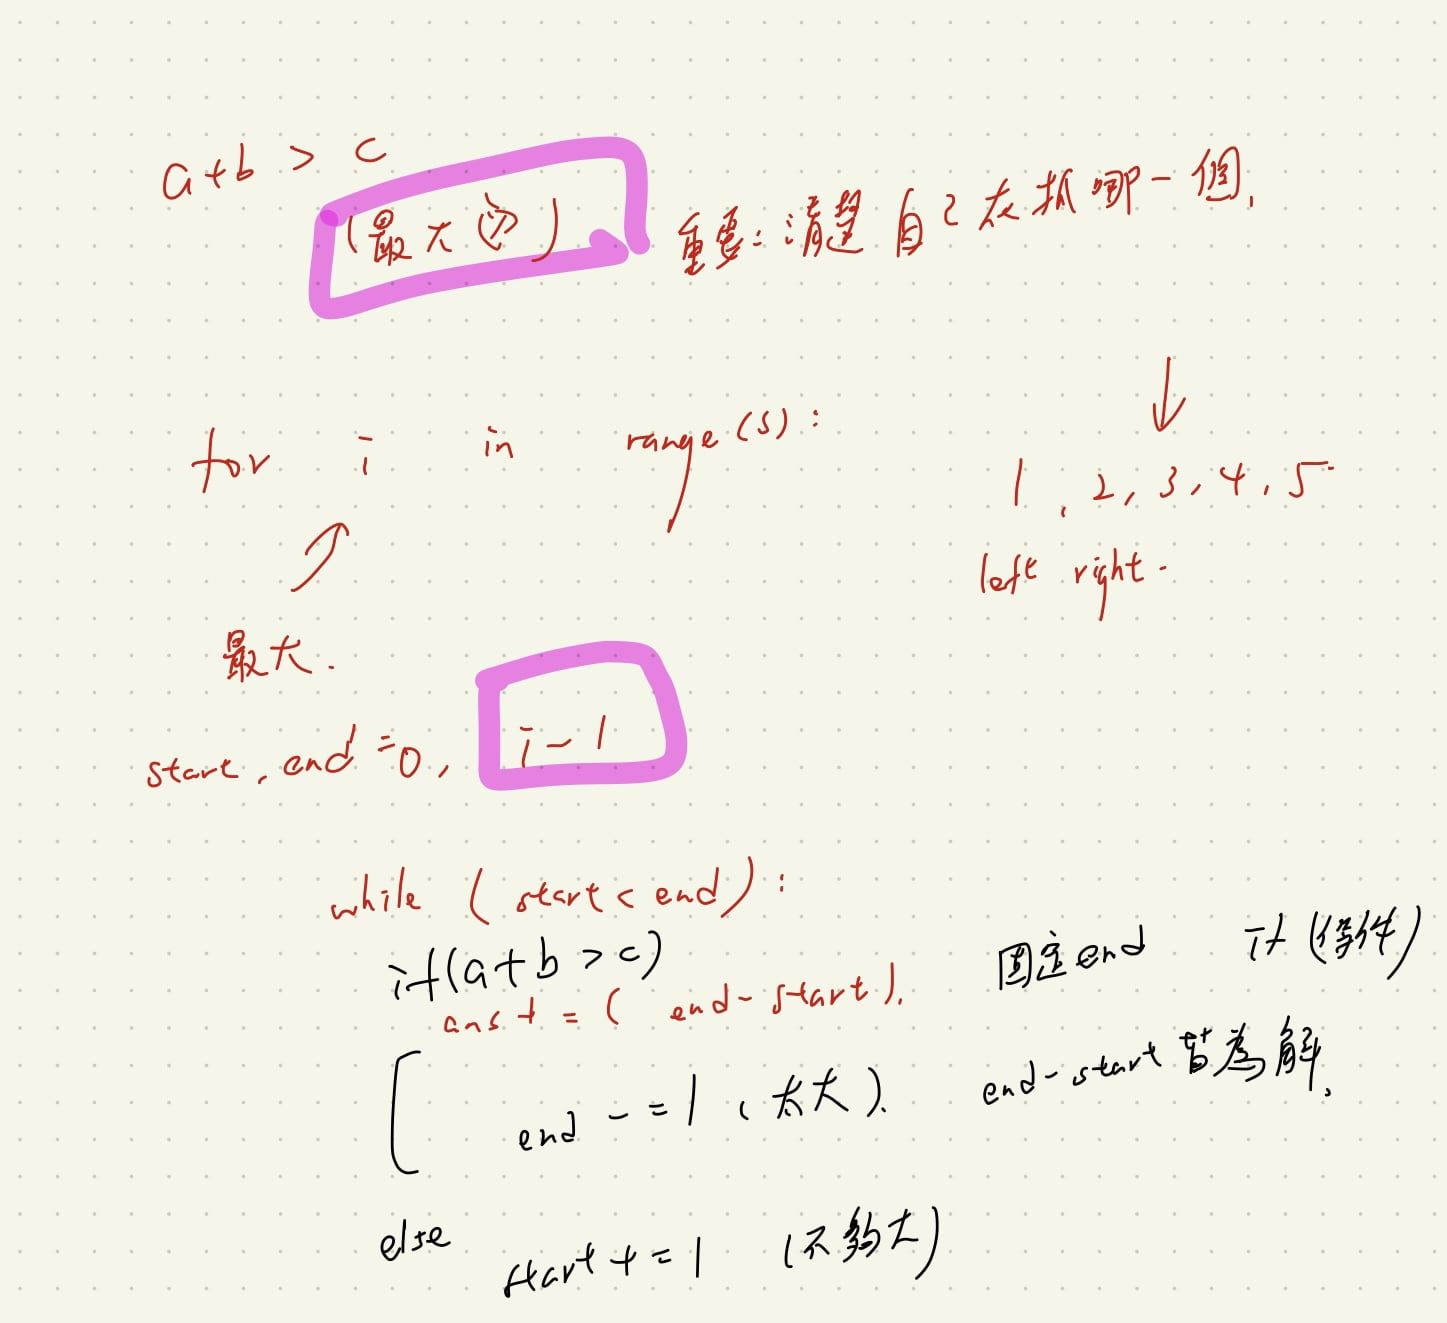 a+b > c
(最大的) 重要: 清楚自己在抓哪一個.
for i in range(s):
1, 2, 3, 4, 5
left right.
最大.
start, end = 0, i-1
while (start < end):
if(a+b > c) 固定end if (條件)
ans += (end-start).
end -= 1 (太大). end-start 皆為解.
else
start += 1 (不夠大)